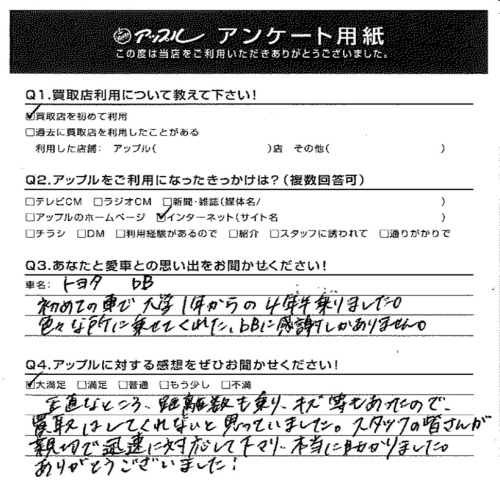 アップル アンケート用紙
この度は当店をご利用いただきありがとうございました。
Q1.買取店利用について教えて下さい!
☑買取店を初めて利用
□過去に買取店を利用したことがある
利用した店舗: アップル( )店 その他( )
Q2.アップルをご利用になったきっかけは?(複数回答可)
□テレビCM □ラジオCM □新聞・雑誌(媒体名/ )
□アップルのホームページ ☑インターネット(サイト名 )
□チラシ □DM □利用経験があるので □紹介 □スタッフに誘われて □通りがかりで
Q3.あなたと愛車との思い出をお聞かせください!
車名: トヨタ bB
初めての車で大学1年からの4年半乗りました。
色々な所に乗せてくれた、bBに感謝しかありません。
Q4.アップルに対する感想をぜひお聞かせください!
☑大満足 □満足 □普通 □もう少し □不満
正直なところ、距離数も乗り、キズ等もあったので、
買取はしてくれないと思っていました。スタッフの皆さんが
親切で迅速に対応して下さり、本当に助かりました。
ありがとうございました!